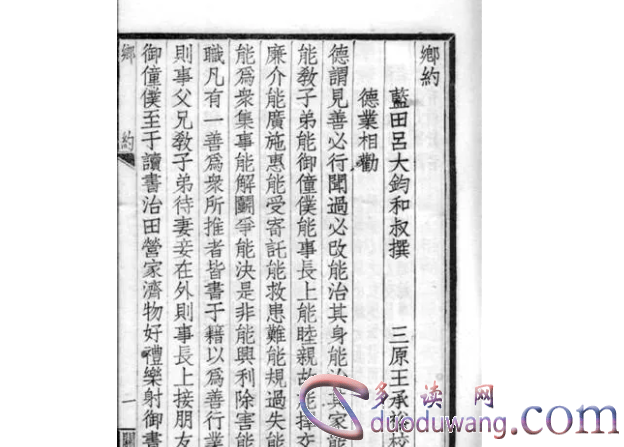 鄉約
藍田呂大鈞和叔撰 三原王承裕校
德業相勸
德謂見善必行聞過必改能治其身能治其家能
能敎子弟能御僮僕能事長上能睦親故能擇交
廉介能廣施惠能受寄託能救患難能規過失能
能爲衆集事能解鬭爭能決是非能興利除害能
職凡有一善爲衆所推者皆書于籍以爲善行業
則事父兄敎子弟待妻妾在外則事長上接朋友
御僮僕至于讀書治田營家濟物好禮樂射御書
鄉約 一
多读网
duoduwang.com